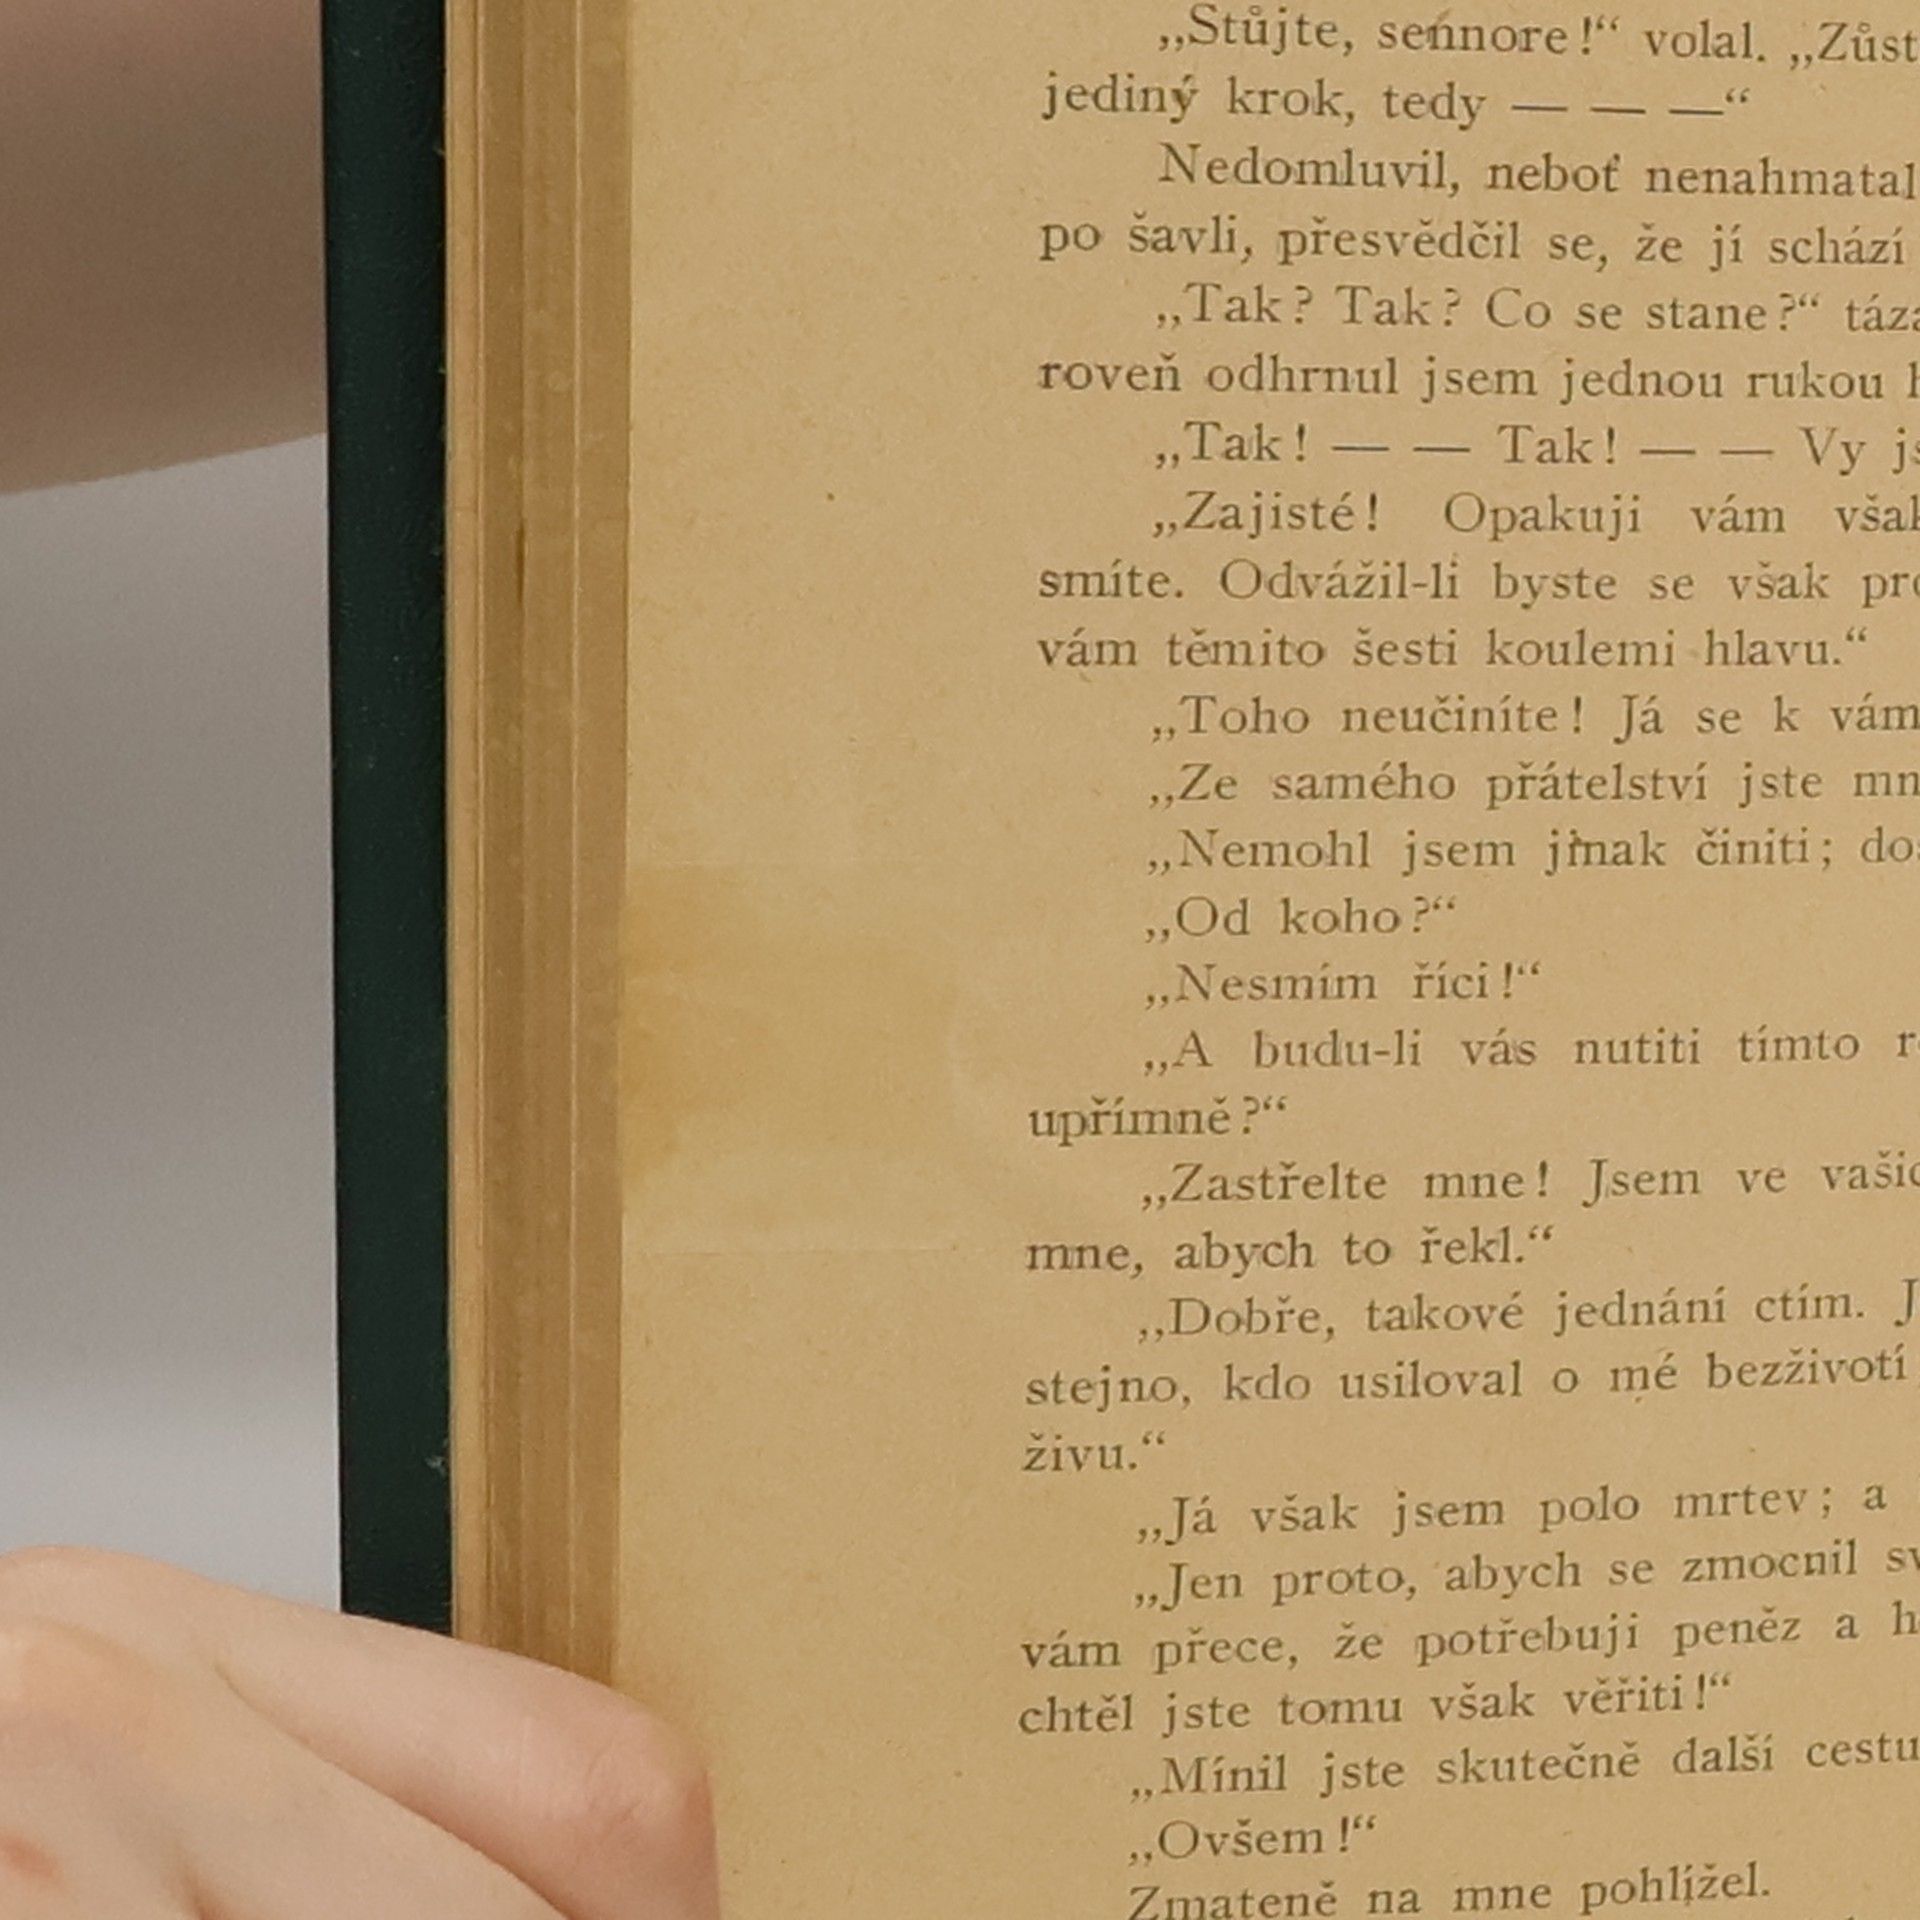 „Stůjte, sennore!“ volal.
jediný krok, tedy — — —“
Nedomluvil, neboť nenahmatal
po šavli, přesvědčil se, že jí schází
„Tak? Tak? Co se stane?“
roveň odhrnul jsem jednou rukou
„Tak! — — Tak! — — Vy
„Zajisté! Opakuji vám
smíte. Odvážil-li byste se však
vám těmito šesti koulemi hlavu.“
„Toho neučiníte! Já se k vám
„Ze samého přátelství jste
„Nemohl jsem jinak činiti;
„Od koho?“
„Nesmím říci!“
„A budu-li vás nutiti tímto
upřímně?“
„Zastřelte mne! Jsem ve
mne, abych to řekl.“
„Dobře, takové jednání ctím.
stejno, kdo usiloval o mé bezživotí
živu.“
„Já však jsem polo mrtev; a
„Jen proto, abych se zmocnil
vám přece, že potřebuji peněz a
chtěl jste tomu však věřiti!“
„Mínil jste skutečně další cestu
„Ovšem!“
Zmateně na mne pohlížel.